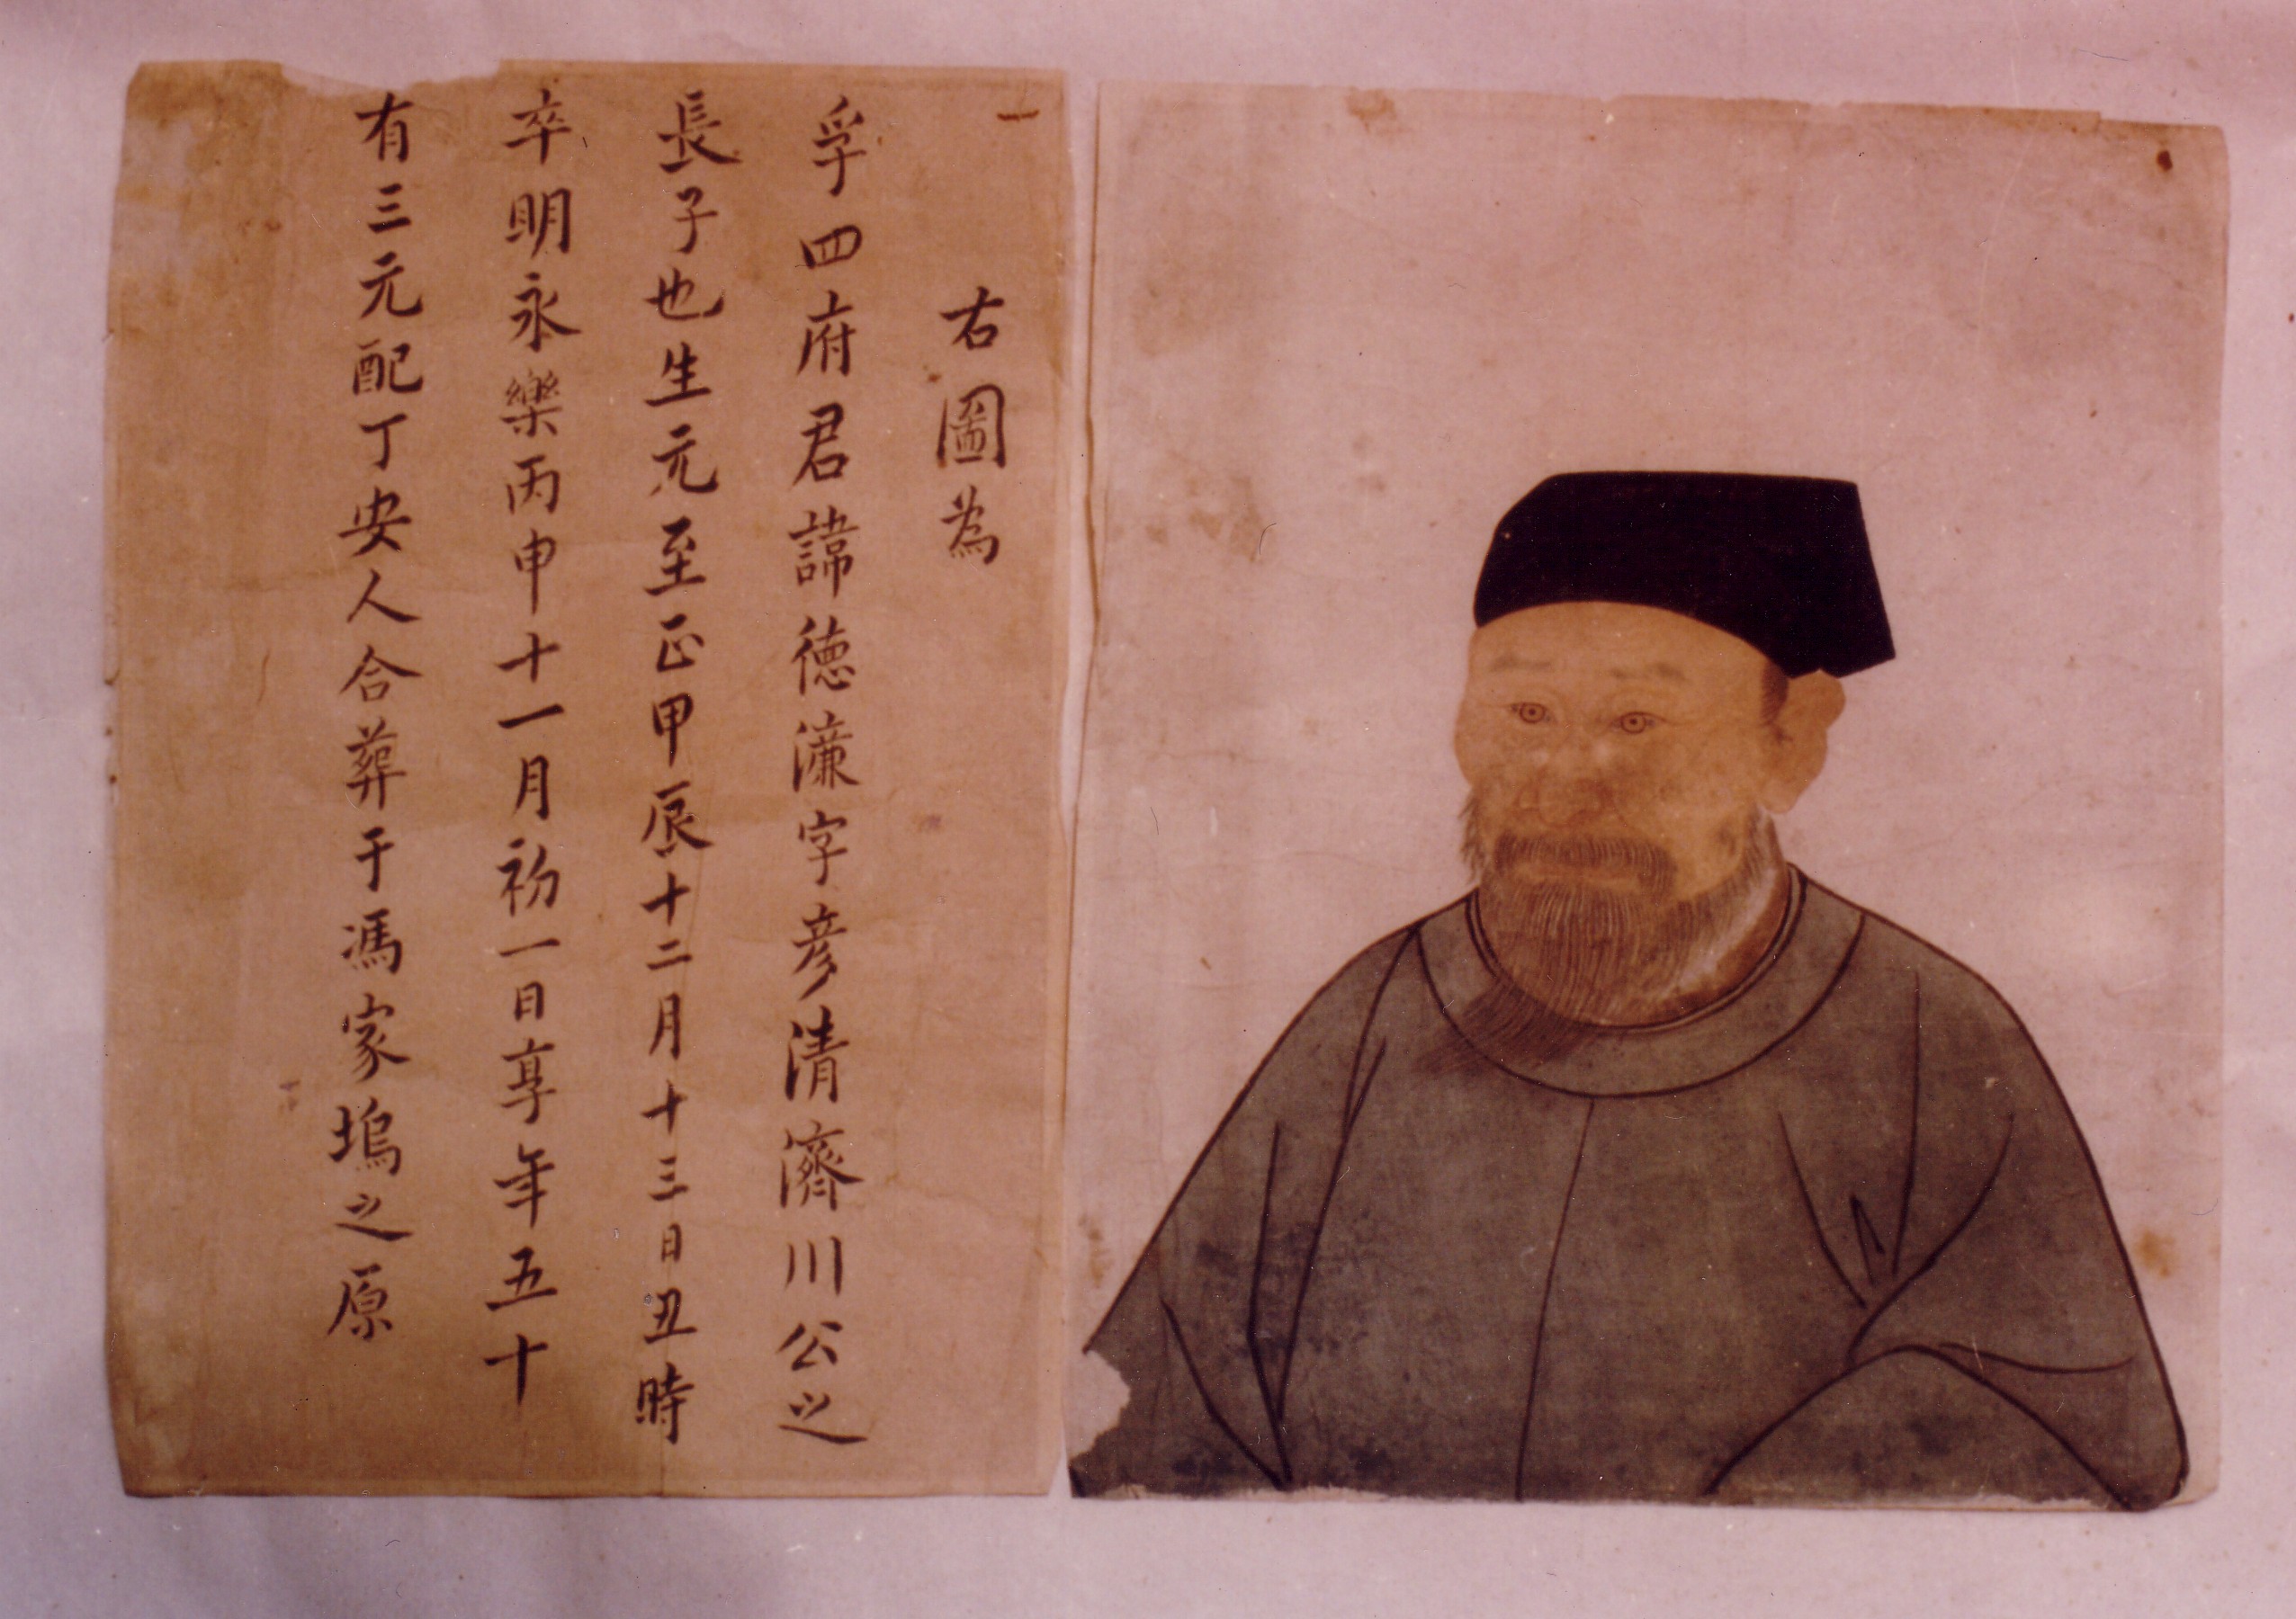 右圖為
孚四府君諱德濂字彥清濟川公之
長子也生元至正甲辰十二月十三日丑時
卒明永樂丙申十一月初一日享年五十
有三元配丁安人合葬于馮家塢之原